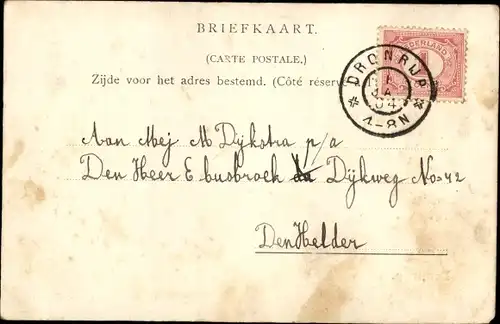 BRIEFKAART.
(CARTE POSTALE.)
Zijde voor het adres bestemd. (Côté réserv
NEDERLAND
DRONRIJP
04
4-8N
Aan Mej M Dijkstra p/a
Den Heer E busbroek Dijkweg No=42
Den Helder